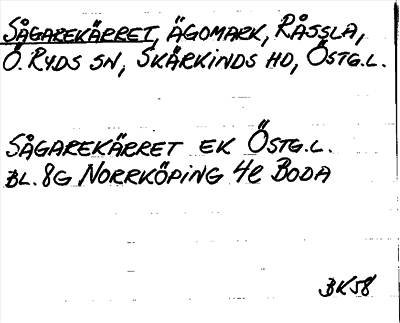 SÅGAREKÄRRET, ÄGOMARK, RÅSSLA,
Ö. RYDS SN, SKÄRKINDS HD, ÖSTG.L.
SÅGAREKÄRRET EK ÖSTG.L.
BL. 8G NORRKÖPING 4e BODA
BK58